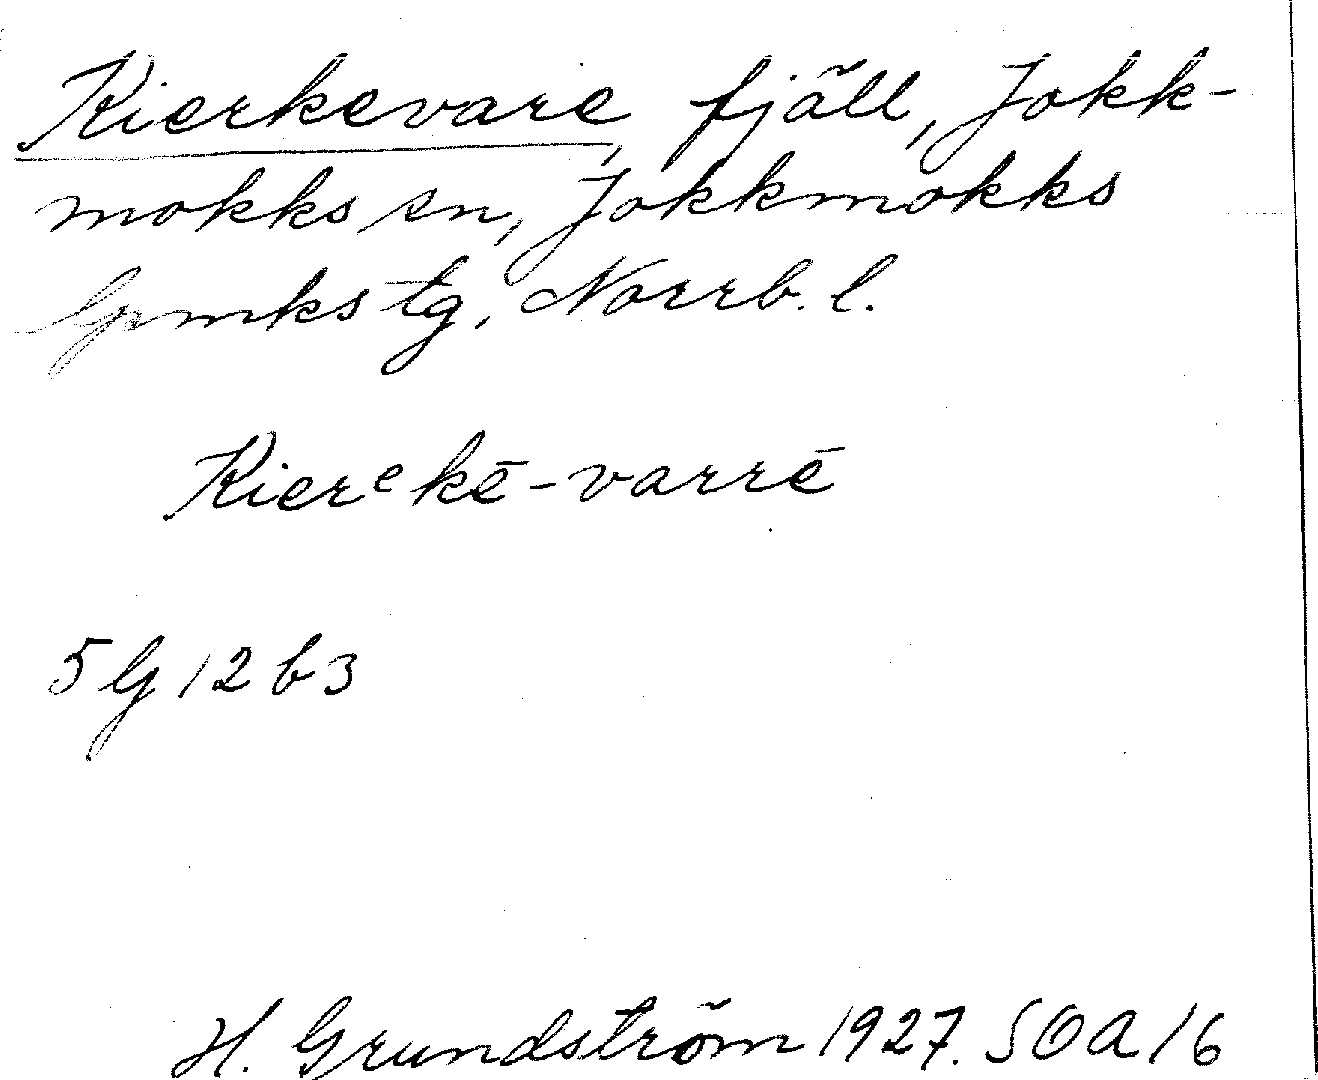 Kierkevare, fjäll, Jokk-
mokks sn, Jokkmokks
lpmks tg, Norrb. l.
Kierᵉkē-varrē
5 G 12 b 3
H. Grundström 1927. SOA 16